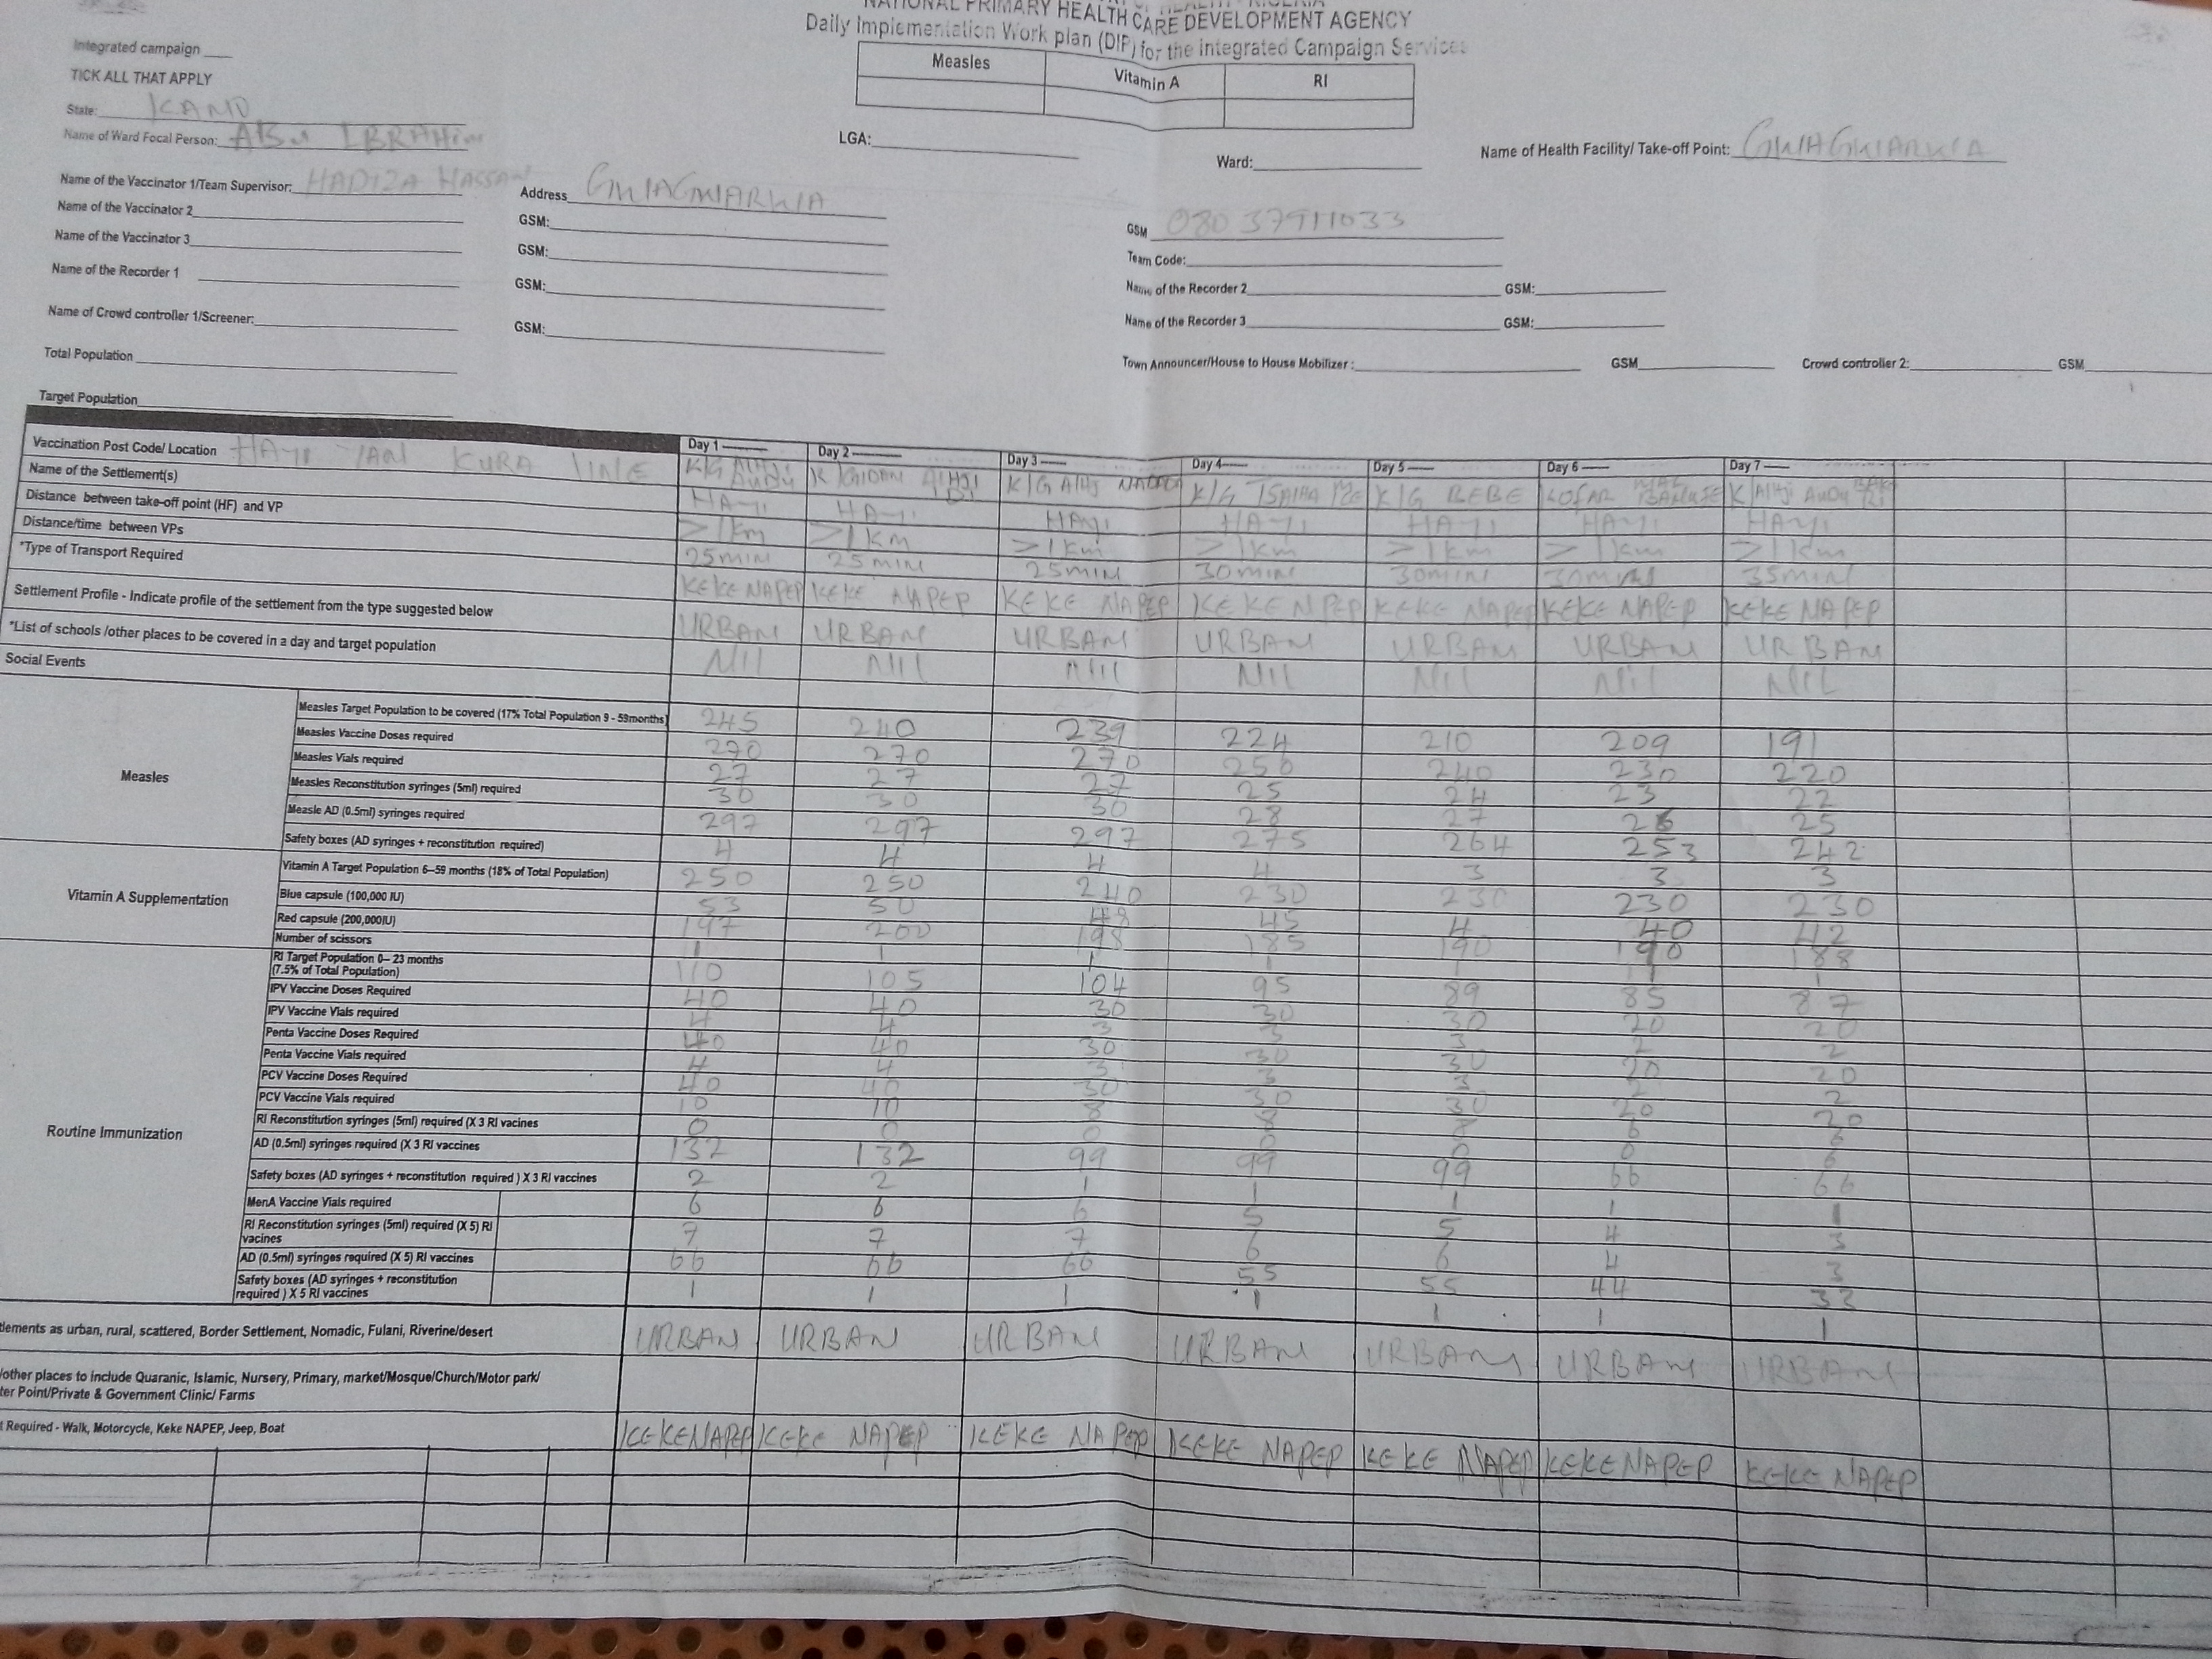 NATIONAL PRIMARY HEALTH CARE DEVELOPMENT AGENCY
Daily Implementation Work plan (DIP) for the Integrated Campaign Services
Integrated campaign
TICK ALL THAT APPLY
Measles Vitamin A RI
State: KANO
Name of Ward Focal Person: ABU IBRAHIM
LGA:
Ward:
Name of Health Facility/ Take-off Point: GWAGWARWA
Name of the Vaccinator 1/Team Supervisor: HADIZA HASSAN Address GWAGWARWA GSM 08037911033
Name of the Vaccinator 2 GSM: Team Code:
Name of the Vaccinator 3 GSM: Name of the Recorder 2 GSM:
Name of the Recorder 1 GSM: Name of the Recorder 3 GSM:
Name of Crowd controller 1/Screener: GSM:
Total Population Town Announcer/House to House Mobilizer : GSM Crowd controller 2: GSM
Target Population
Day 1 Day 2 Day 3 Day 4 Day 5 Day 6 Day 7
Vaccination Post Code/ Location HAYI YAN KURA LINE K/G ALHJI AUDU K KGIDAN ALHJI K/G AlHJ K/G K/G BEBE KOFAR K/AlHJI AUDU
Name of the Settlement(s) HAYI HAYI HAYI HAYI HAYI HAYI HAYI
Distance between take-off point (HF) and VP >1km >1km >1km >1km >1km >1km >1km
Distance/time between VPs 25MIN 25MIN 25MIN 30MIN 30MIN 30MIN 35MIN
*Type of Transport Required KEKE NAPEP KEKE NAPEP KEKE NAPEP KEKE NPEP KEKE NAPEP KEKE NAPEP KEKE NAPEP
Settlement Profile - Indicate profile of the settlement from the type suggested below URBAN URBAN URBAN URBAN URBAN URBAN URBAN
*List of schools /other places to be covered in a day and target population Nil Nil Nil Nil Nil Nil Nil
Social Events
Measles
Measles Target Population to be covered (17% Total Population 9 - 59months) 245 240 239 224 210 209 191
Measles Vaccine Doses required 270 270 270 250 240 230 220
Measles Vials required 27 27 27 25 24 23 22
Measles Reconstitution syringes (5ml) required 30 30 30 28 27 26 25
Measle AD (0.5ml) syringes required 297 297 297 275 264 253 242
Safety boxes (AD syringes + reconstitution required) 4 4 4 4 3 3 3
Vitamin A Supplementation
Vitamin A Target Population 6–59 months (18% of Total Population) 250 250 240 230 230 230 230
Blue capsule (100,000 IU) 53 50 48 45 4 40 42
Red capsule (200,000IU) 197 200 198 185 190 190 188
Number of scissors 1 1 1 1 1 1 1
Routine Immunization
RI Target Population 0– 23 months (7.5% of Total Population) 110 105 104 95 89 85 87
IPV Vaccine Doses Required 40 40 30 30 30 20 20
IPV Vaccine Vials required 4 4 3 3 3 2 2
Penta Vaccine Doses Required 40 40 30 30 30 20 20
Penta Vaccine Vials required 4 4 3 3 3 2 2
PCV Vaccine Doses Required 40 40 30 30 30 20 20
PCV Vaccine Vials required 10 10 8 8 8 6 6
RI Reconstitution syringes (5ml) required (X 3 RI vacines 0 0 0 0 0 0 6
AD (0.5ml) syringes required (X 3 RI vaccines 132 132 99 99 99 66 66
Safety boxes (AD syringes + reconstitution required ) X 3 RI vaccines 2 2 1 1 1 1 1
MenA Vaccine Vials required 6 6 6 5 5 4 3
RI Reconstitution syringes (5ml) required (X 5) RI vacines 7 7 7 6 6 4 3
AD (0.5ml) syringes required (X 5) RI vaccines 66 66 66 55 55 44 33
Safety boxes (AD syringes + reconstitution required ) X 5 RI vaccines 1 1 1 1 1 1 1
tlements as urban, rural, scattered, Border Settlement, Nomadic, Fulani, Riverine/desert URBAN URBAN URBAN URBAN URBAN URBAN URBAN
/other places to include Quaranic, Islamic, Nursery, Primary, market/Mosque/Church/Motor park/
ter Point/Private & Government Clinic/ Farms
t Required - Walk, Motorcycle, Keke NAPEP, Jeep, Boat KEKENAPEP KEKE NAPEP KEKE NAPEP KEKE NAPEP KEKE NAPEP KEKENAPEP KEKE NAPEP